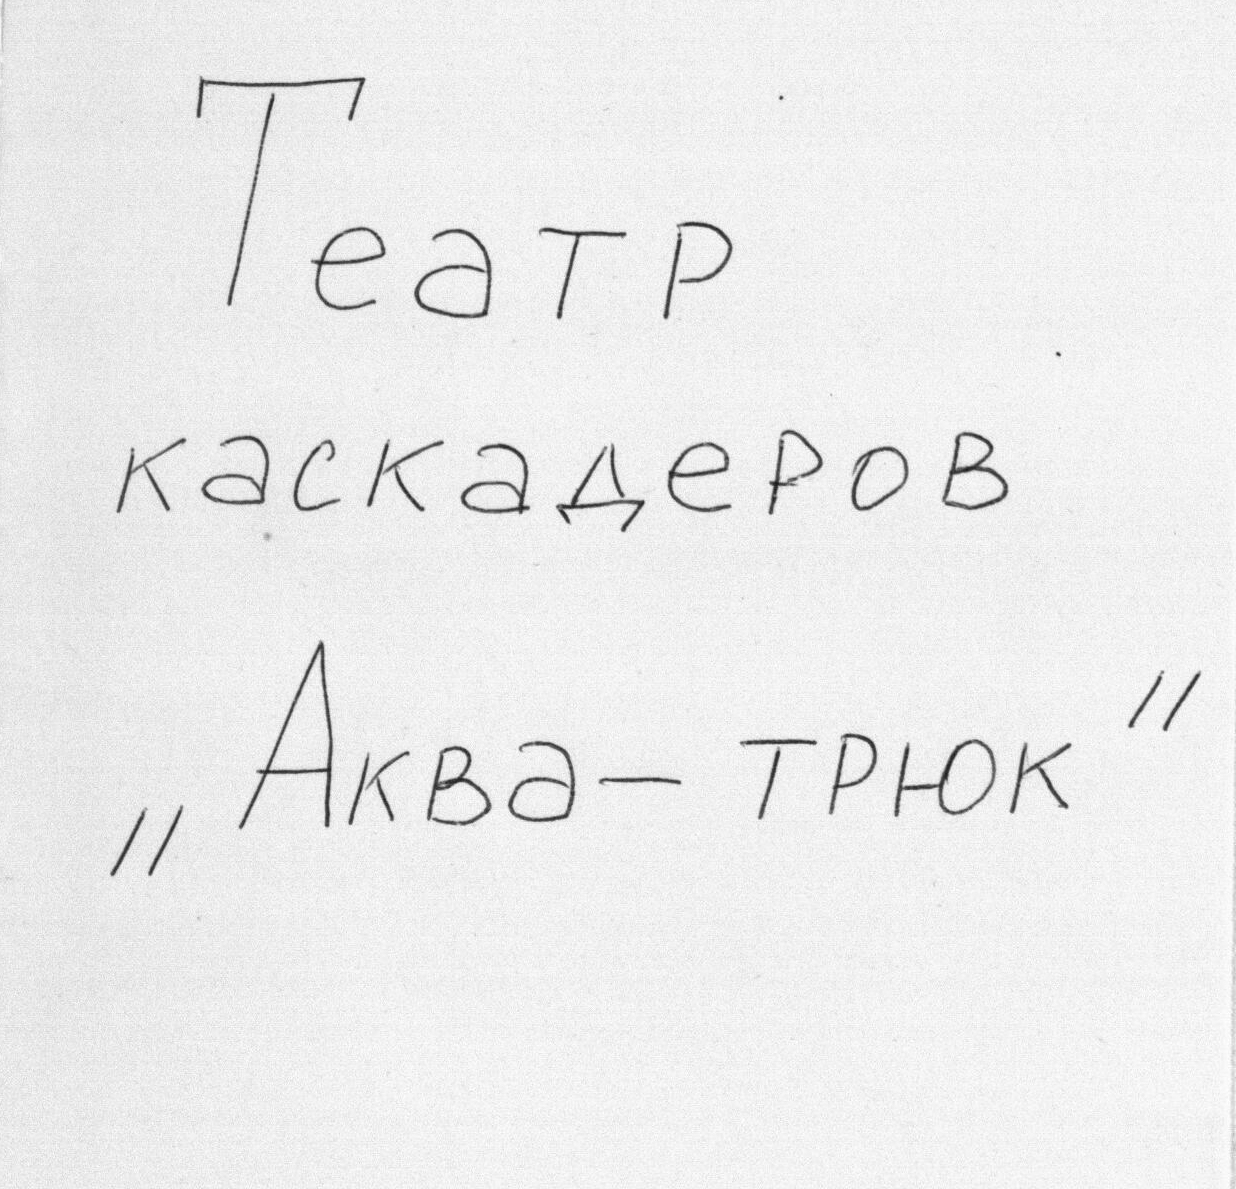 Театр
каскадеров
„Аква - трюк"